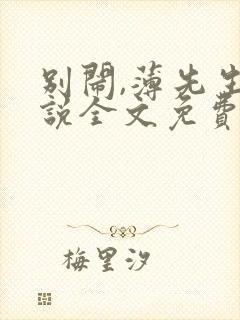 別鬧,薄先生
說全文免費
梅里汐